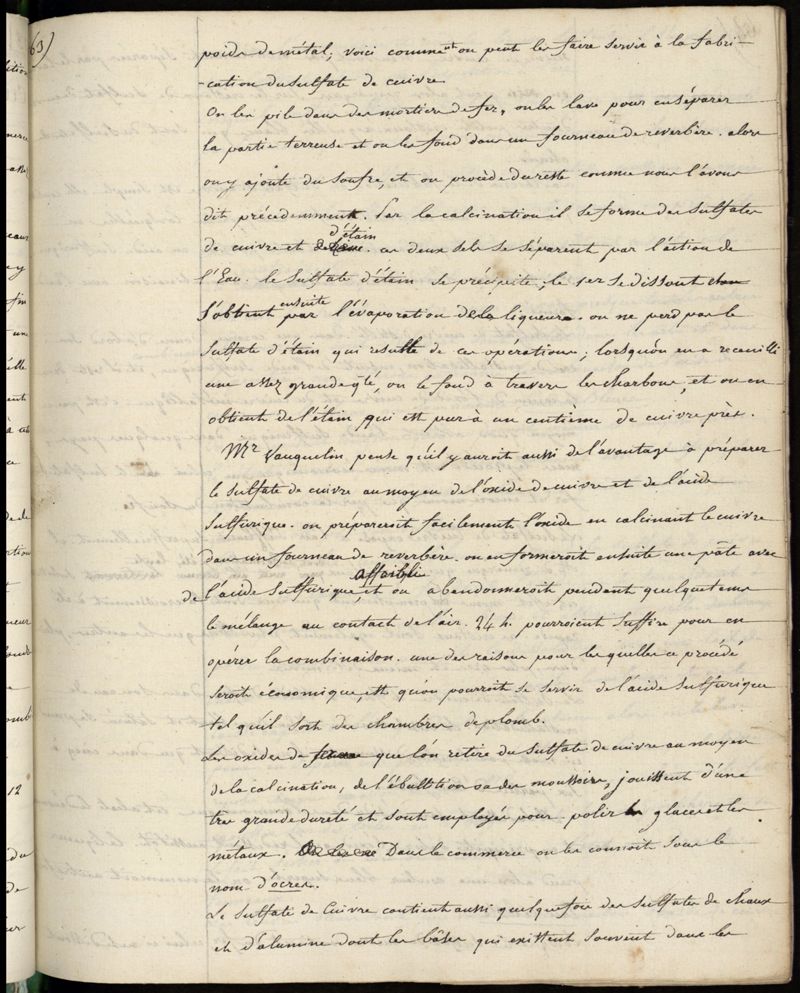 63)
poids de métal; voici comment on peut les faire servir à la fabri-
-cation du sulfate de cuivre
On les pile dans des mortiers de fer, on les lave pour en séparer
la partie terreuse et on les fond dans un fourneau de reverbère. alors
on y ajoute du soufre, et on procède du reste comme nous l'avons
dit précedemment. Par la calcination il se forme des sulfates
de cuivre et d'étain. ces deux sels se séparent par l'action de
l'Eau. le sulfate d'étain se précipite; le 1er se dissout
s'obtient ensuite par l'évaporation de la liqueur. on ne perd pas le
sulfate d'étain qui resulte de ces opérations; lorsqu'on en a recueilli
une assez grande qté, on le fond à travers les charbons, et on en
obtient de l'étain qui est pur à un centième de cuivre près.
Mr Vauquelin pense qu'il y auroit aussi de l'avantage à préparer
le sulfate de cuivre au moyen de l'oxide de cuivre et de l'acide
sulfurique. on prépareroit facilement l'oxide en calcinant le cuivre
dans un fourneau de reverbère. on en formeroit ensuite une pâte avec
de l'acide sulfurique affaibli, et on abandonneroit pendant quelque tems
le mélange au contact de l'air. 24 h. pourroient suffire pour en
opérer la combinaison. une des raisons pour lesquelles ce procédé
seroit économique, est qu'on pourroit se servir de l'acide sulfurique
tel qu'il sort des chambres de plomb.
Les oxides de que l'on retire du sulfate de cuivre au moyen
de la calcination, de l'ébullition ou des moussoirs, jouissent d'une
tres grande dureté et sont employés pour polir les glaces et les
métaux. Dans le commerce on les connoit sous le
nom d'ocres.
Le sulfate de Cuivre contient aussi quelquefois des sulfates de chaux
et d'alumine dont les bâses qui existent souvent dans les